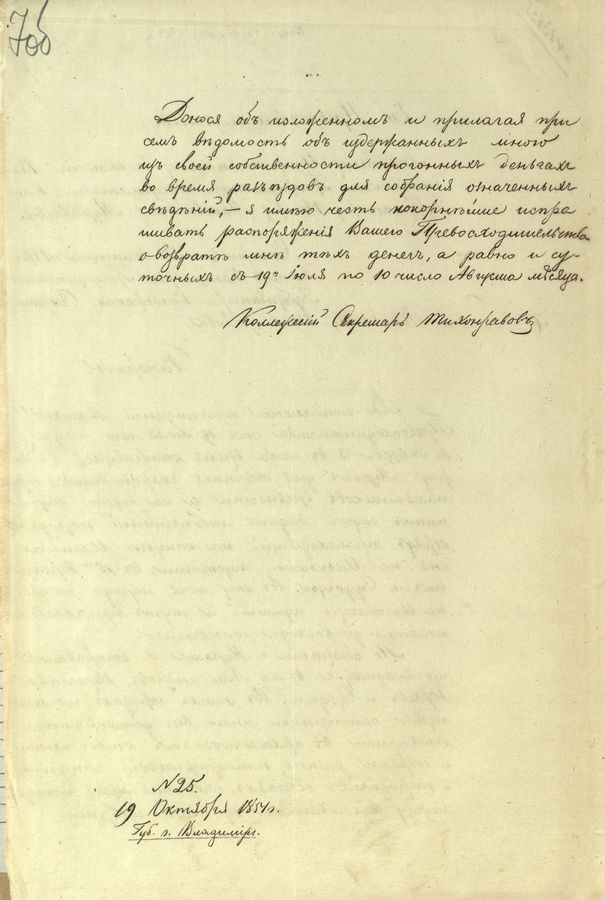 70б
Донося объ изложенномъ и прилагая при
семъ вѣдомость объ издержанныхъ мною
изъ своей собственности прогонныхъ деньгахъ
во время разъѣздовъ для собранія означенныхъ
свѣдѣній, – я имѣю честь покорнѣйше испра
шивать распоряженія Вашего Превосходительства
о возвратѣ мнѣ тѣхъ денегъ, а равно и су-
точныхъ съ 19го Іюля по 10 число Августа мѣсяца.
Коллежскій Секретарь Тихонравовъ
N 25.
19 Октября 1854 г.
Губ. г. Владиміръ.